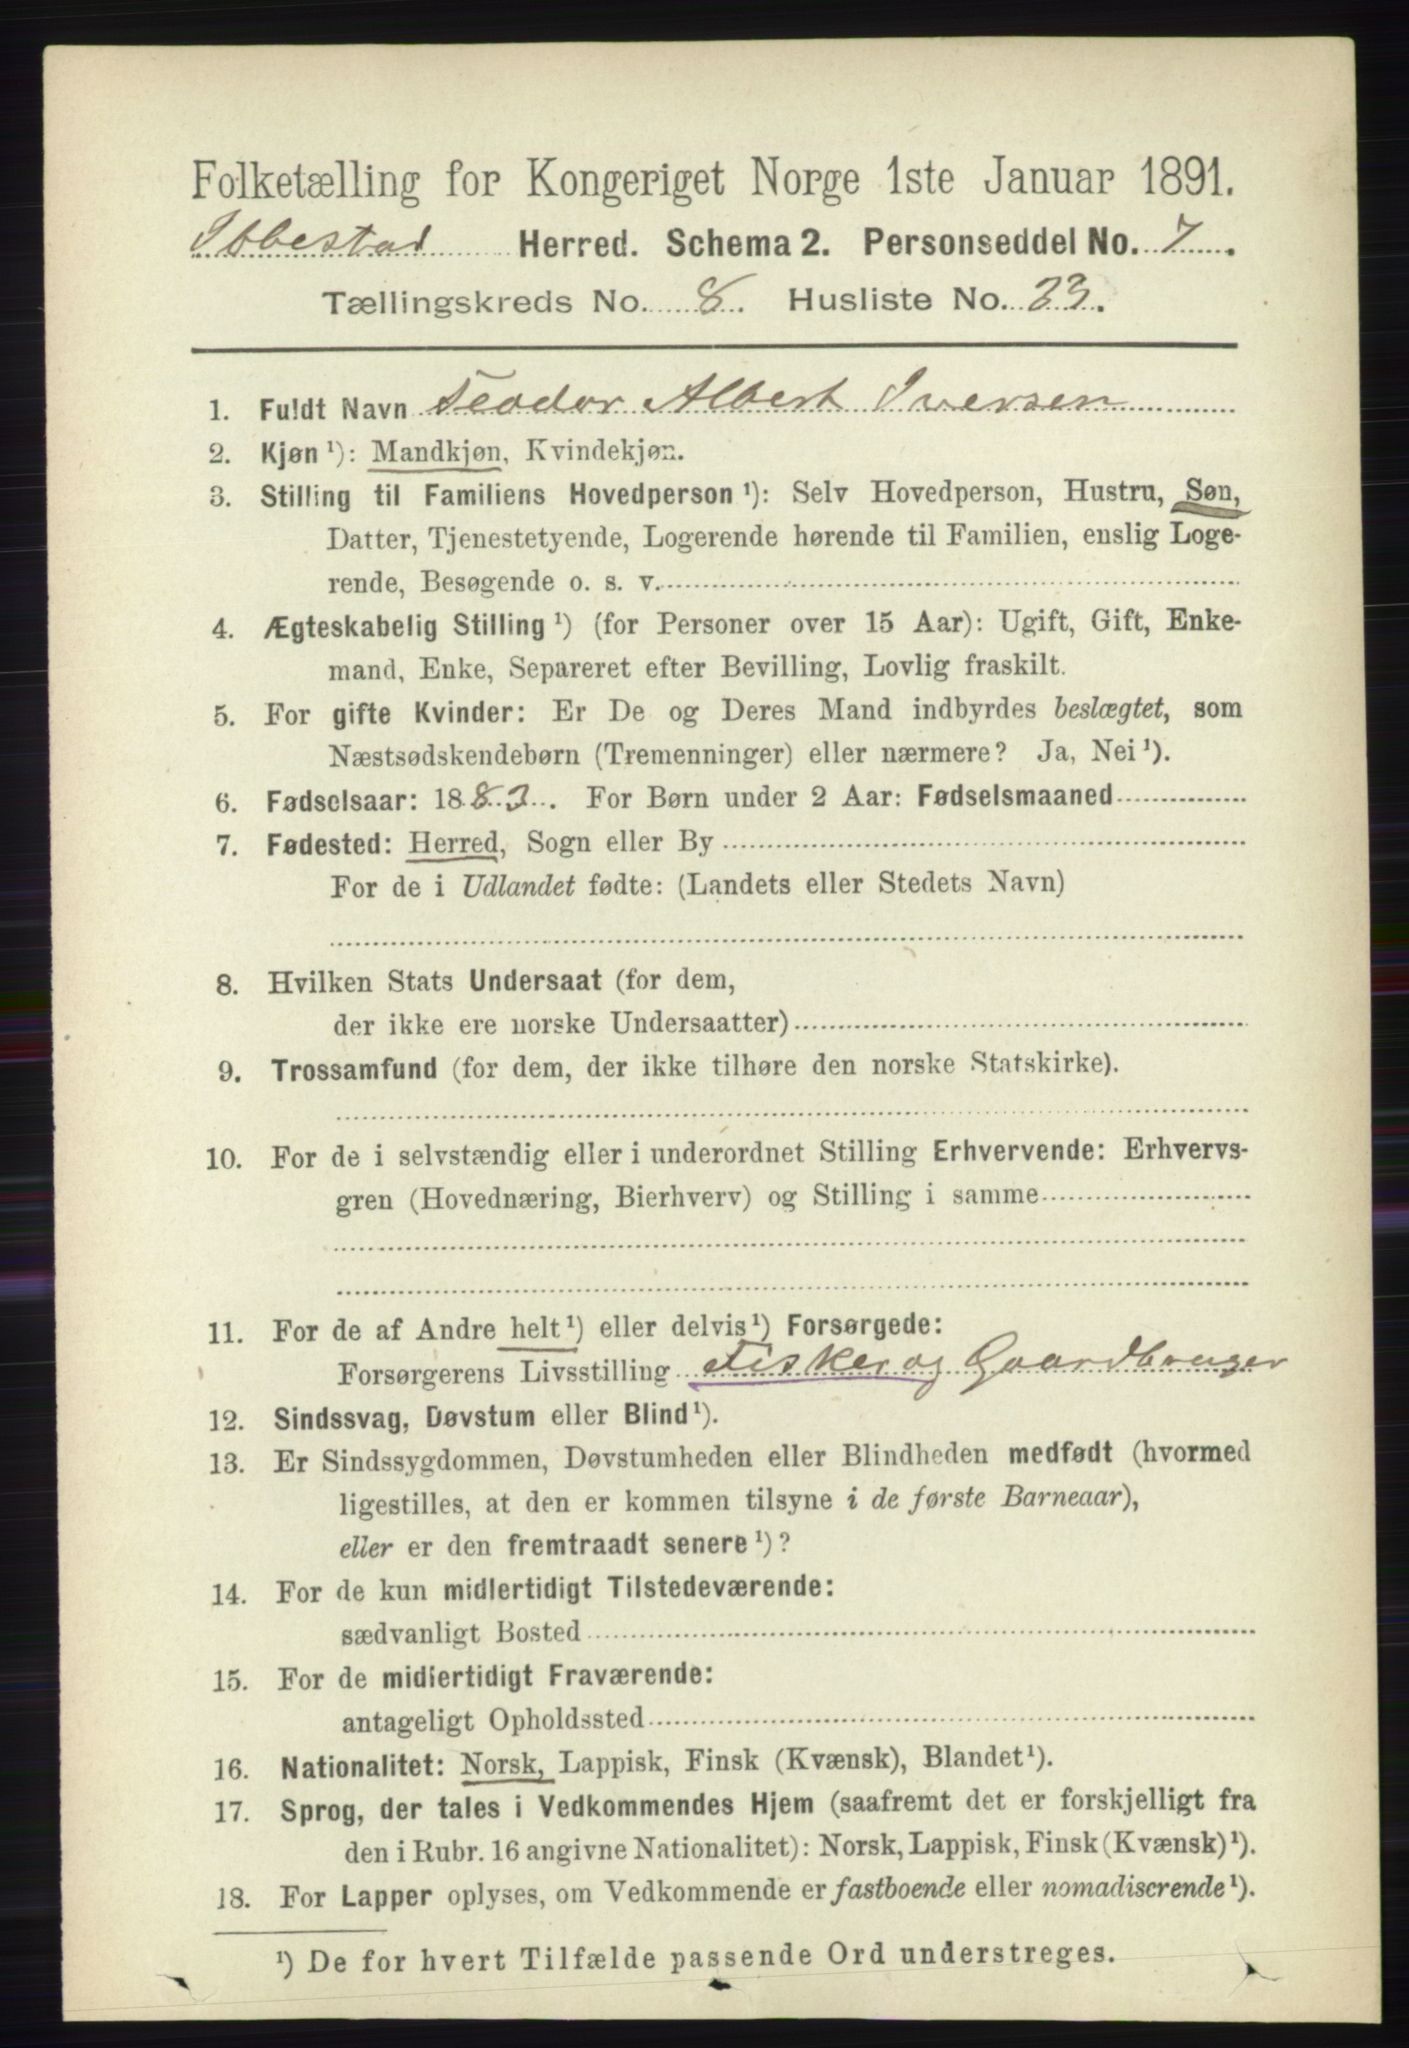 Folketælling for Kongeriget Norge 1ste Januar 1891.
Ibbestad Herred. Schema 2. Personseddel No. 7.
Tællingskreds No. 8. Husliste No. 23.
1. Fuldt Navn Teodor Albert Iversen
2. Kjøn ¹): Mandkjøn, Kvindekjøn.
3. Stilling til Familiens Hovedperson ¹): Selv Hovedperson, Hustru, Søn,
Datter, Tjenestetyende, Logerende hørende til Familien, enslig Loge-
rende, Besøgende o. s. v.
4. Ægteskabelig Stilling ¹) (for Personer over 15 Aar): Ugift, Gift, Enke-
mand, Enke, Separeret efter Bevilling, Lovlig fraskilt.
5. For gifte Kvinder: Er De og Deres Mand indbyrdes beslægtet, som
Næstsødskendebørn (Tremenninger) eller nærmere? Ja, Nei ¹).
6. Fødselsaar: 1883. For Børn under 2 Aar: Fødselsmaaned
7. Fødested: Herred, Sogn eller By
For de i Udlandet fødte: (Landets eller Stedets Navn)
8. Hvilken Stats Undersaat (for dem,
der ikke ere norske Undersaatter)
9. Trossamfund (for dem, der ikke tilhøre den norske Statskirke).
10. For de i selvstændig eller i underordnet Stilling Erhvervende: Erhvervs-
gren (Hovednæring, Bierhverv) og Stilling i samme
11. For de af Andre helt ¹) eller delvis ¹) Forsørgede:
Forsørgerens Livsstilling Fisker og Gaardbruger
12. Sindssvag, Døvstum eller Blind ¹).
13. Er Sindssygdommen, Døvstumheden eller Blindheden medfødt (hvormed
ligestilles, at den er kommen tilsyne i de første Barneaar),
eller er den fremtraadt senere ¹)?
14. For de kun midlertidigt Tilstedeværende:
sædvanligt Bosted
15. For de midlertidigt Fraværende:
antageligt Opholdssted
16. Nationalitet: Norsk, Lappisk, Finsk (Kvænsk), Blandet ¹).
17. Sprog, der tales i Vedkommendes Hjem (saafremt det er forskjelligt fra
den i Rubr. 16 angivne Nationalitet): Norsk, Lappisk, Finsk (Kvænsk) ¹).
18. For Lapper oplyses, om Vedkommende er fastboende eller nomadiserende ¹).
¹) De for hvert Tilfælde passende Ord understreges.